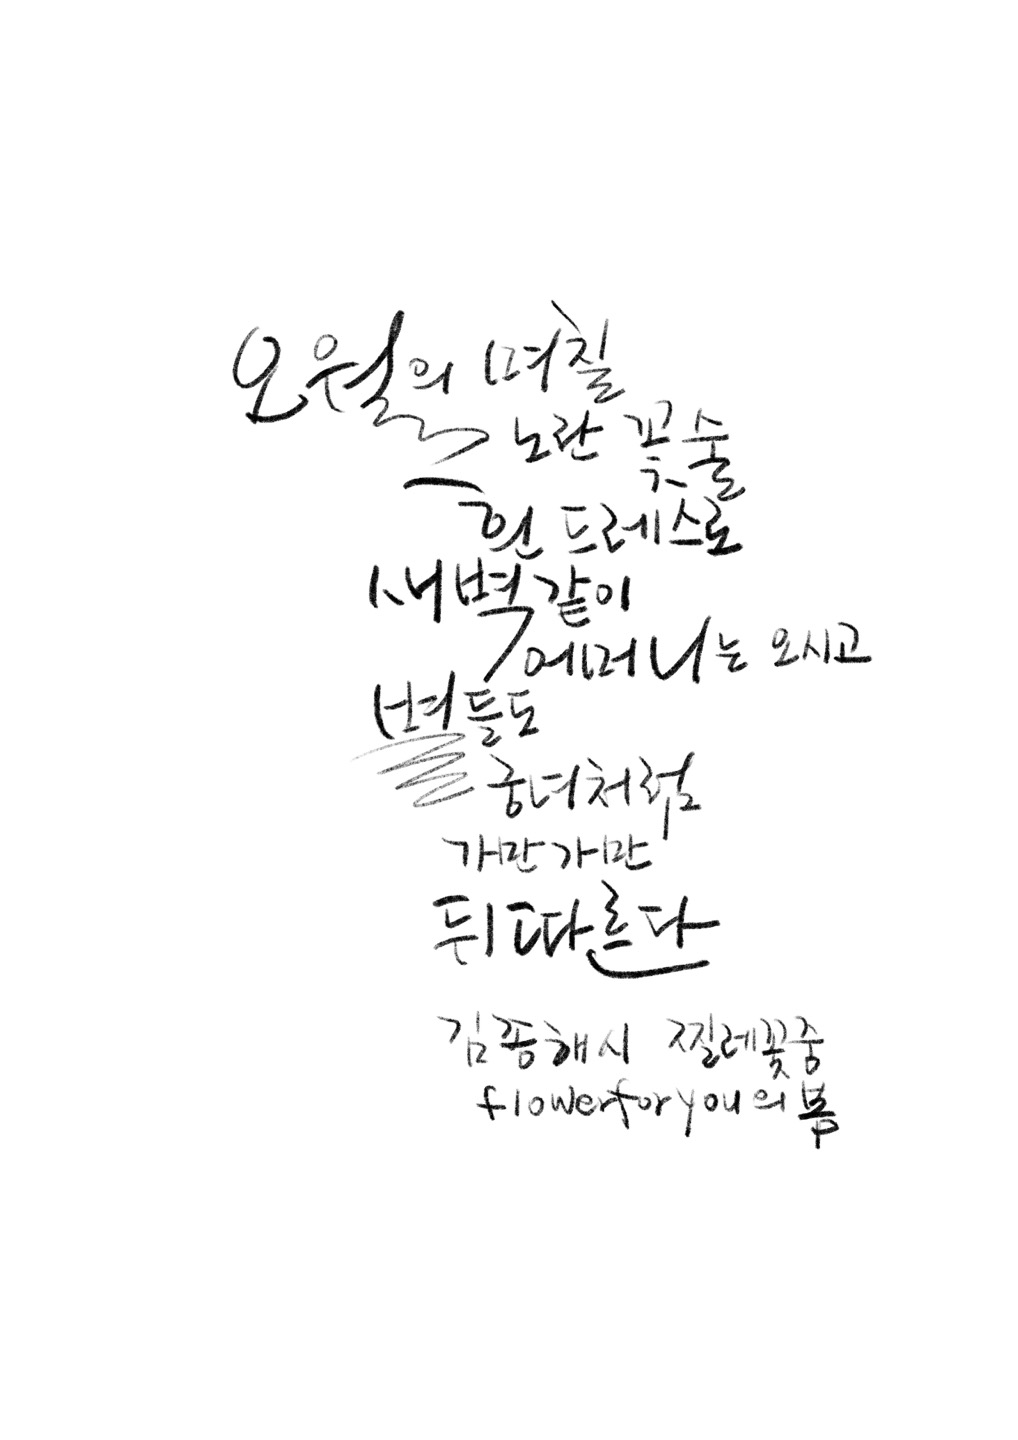 오월의 며칠
노란 꽃술
흰 드레스로
새벽같이
어머니는 오시고
별들도
궁녀처럼
가만가만
뒤따른다
김종해시 찔레꽃중
flowerforyou의봄